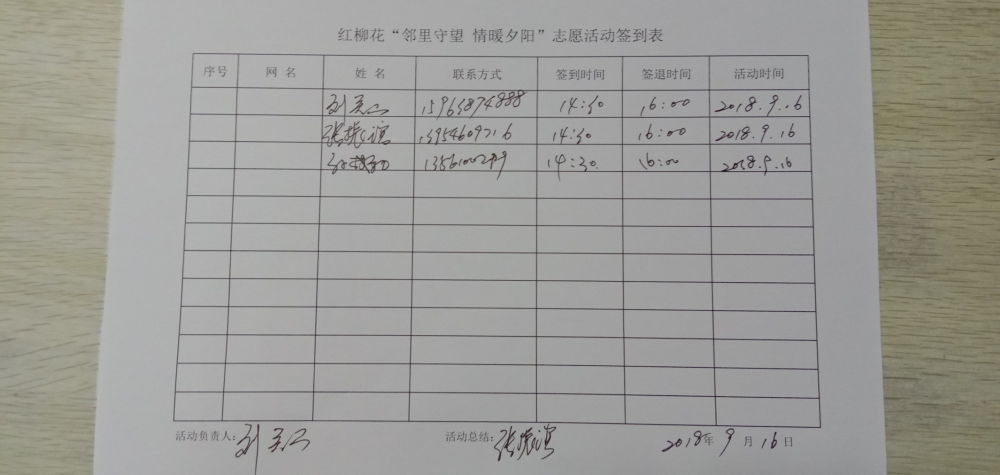 红柳花“邻里守望 情暖夕阳”志愿活动签到表
序号 网名 姓名 联系方式 签到时间 签退时间 活动时间
15963874888 14:30 16:00 2018.9.16
张振滨 13954609716 14:30 16:00 2018.9.16
14:30 16:00 2018.9.16
活动负责人: 活动总结: 张振滨 2018年 9 月 16 日